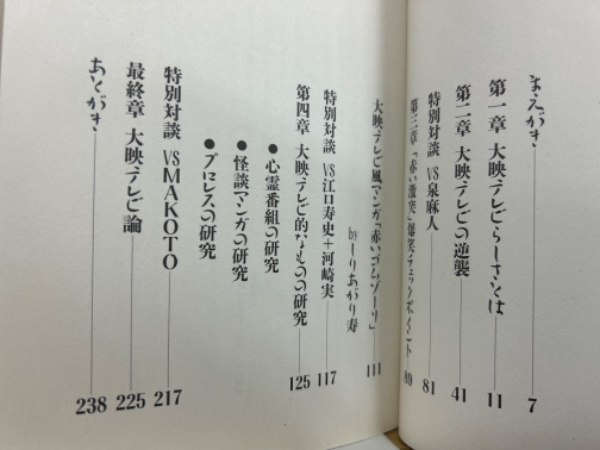 まえがき 7
第一章 大映テレビらしさとは 11
第二章 大映テレビの逆襲 41
特別対談 VS泉麻人 81
第三章 「赤い激突」爆笑チェックポイント 89
大映テレビ風マンガ「赤いゴムゾーリ」
byしりあがり寿 111
特別対談 VS江口寿史+河崎実 117
第四章 大映テレビ的なものの研究 125
●心霊番組の研究
●怪談マンガの研究
●プロレスの研究
特別対談 VSMAKOTO 217
最終章 大映テレビ論 225
あとがき 238